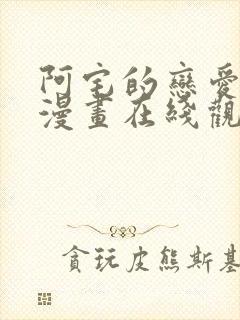 阿宅的戀愛
漫畫在綫觀
貪玩皮熊斯基